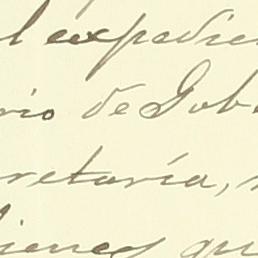 l expedien
rio de Gob
retaría,
bienes qu